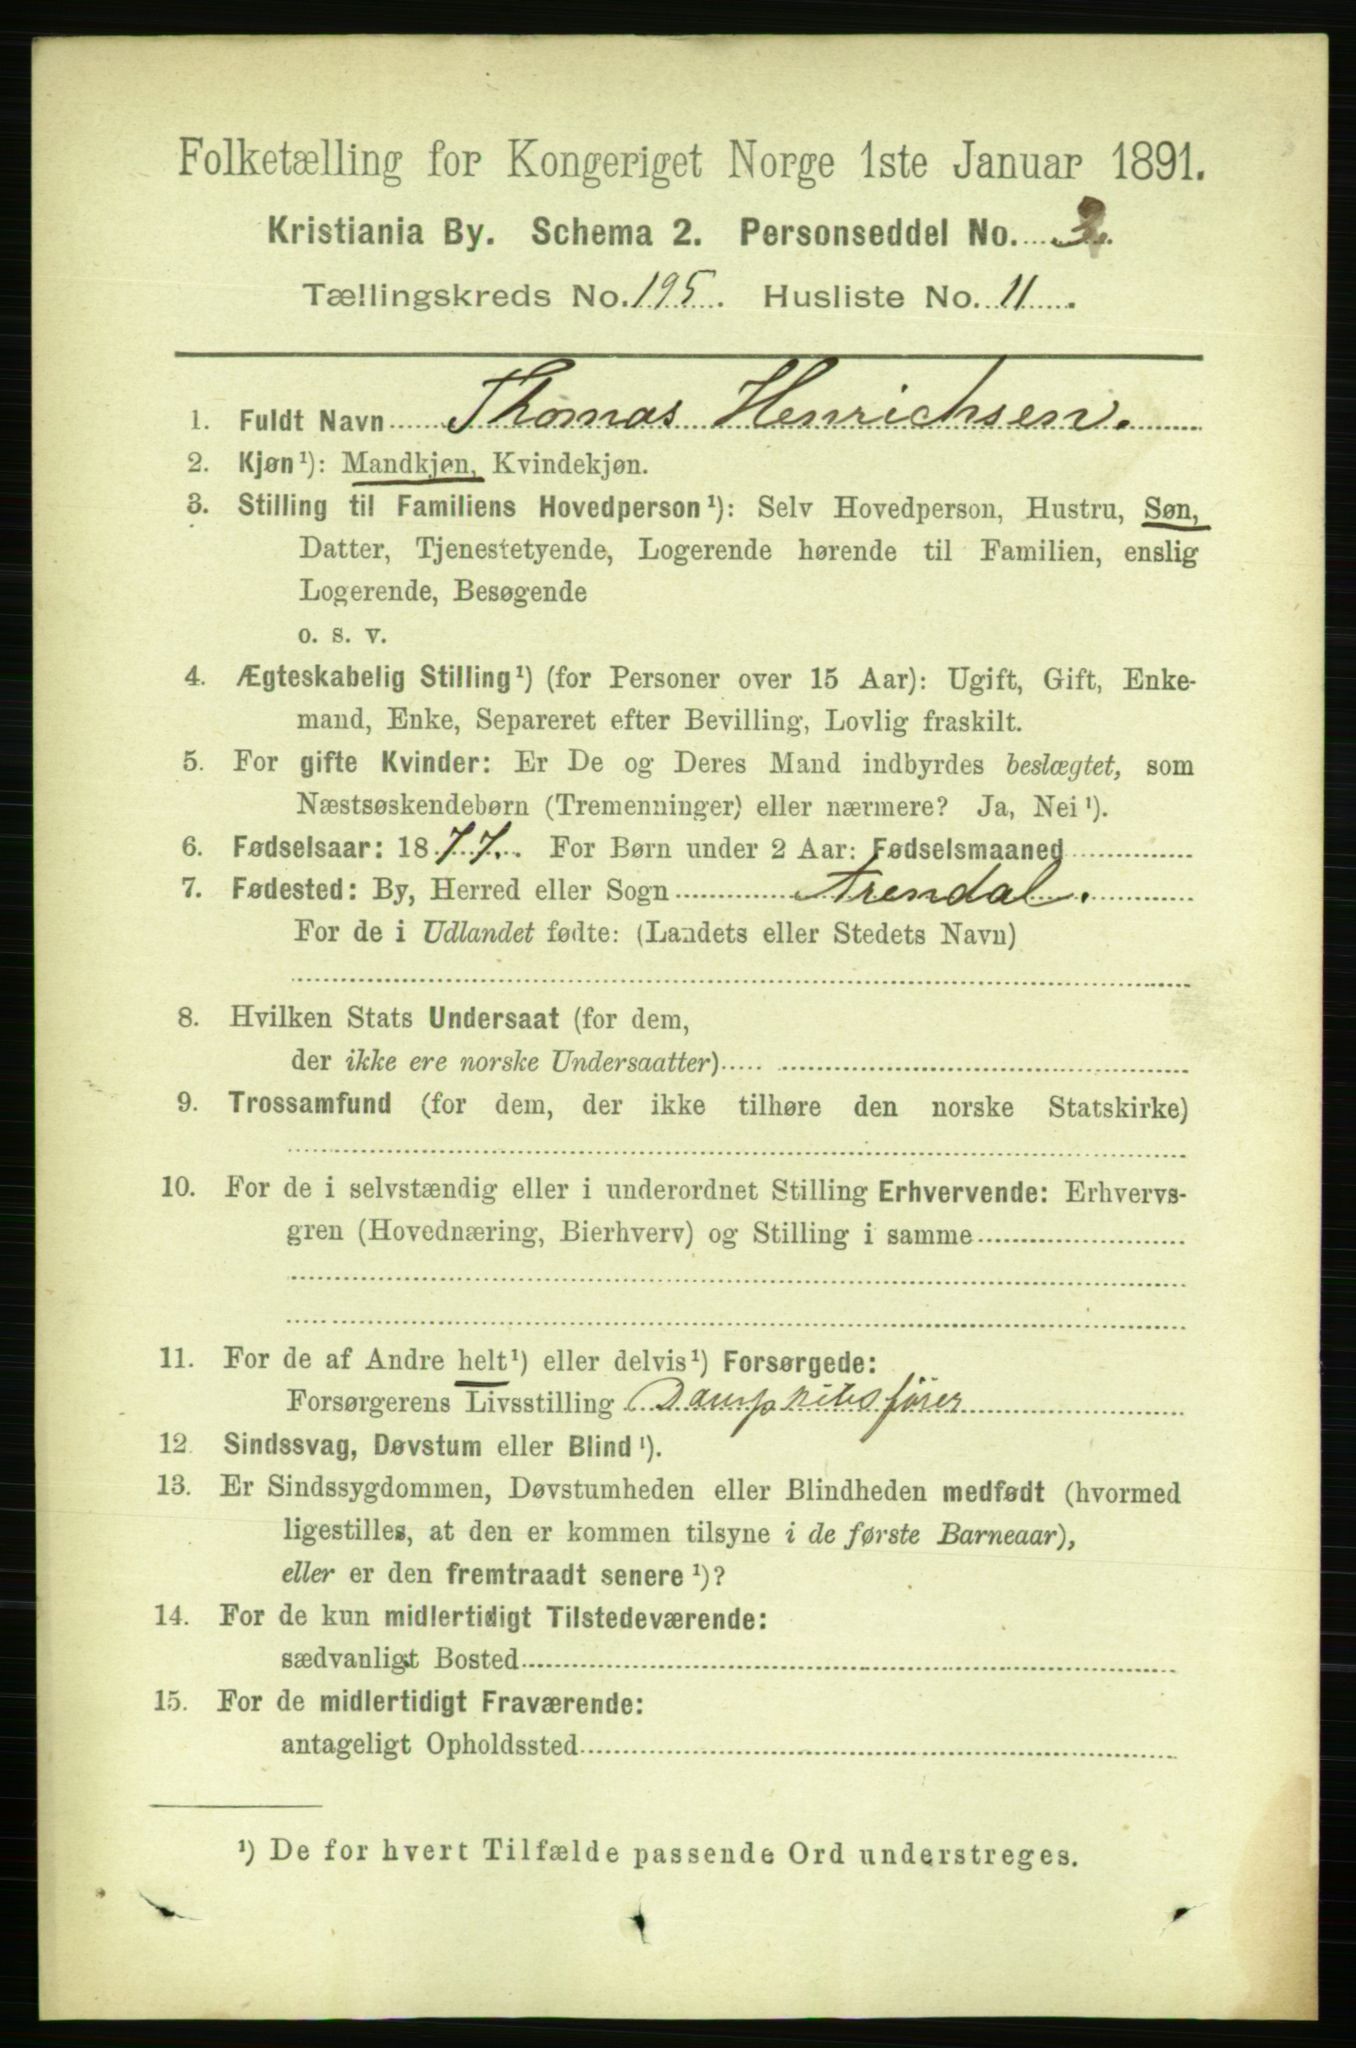 Folketælling for Kongeriget Norge 1ste Januar 1891.
Kristiania By. Schema 2. Personseddel No. 3.
Tællingskreds No. 195. Husliste No. 11.
1. Fuldt Navn Thomas Henrichsen.
2. Kjøn¹): Mandkjøn, Kvindekjøn.
3. Stilling til Familiens Hovedperson¹): Selv Hovedperson, Hustru, Søn,
Datter, Tjenestetyende, Logerende hørende til Familien, enslig
Logerende, Besøgende
o. s. v.
4. Ægteskabelig Stilling¹) (for Personer over 15 Aar): Ugift, Gift, Enke-
mand, Enke, Separeret efter Bevilling, Lovlig fraskilt.
5. For gifte Kvinder: Er De og Deres Mand indbyrdes beslægtet, som
Næstsøskendebørn (Tremenninger) eller nærmere? Ja, Nei¹).
6. Fødselsaar: 1877. For Børn under 2 Aar: Fødselsmaaned
7. Fødested: By, Herred eller Sogn Arendal.
For de i Udlandet fødte: (Landets eller Stedets Navn)
8. Hvilken Stats Undersaat (for dem,
der ikke ere norske Undersaatter)
9. Trossamfund (for dem, der ikke tilhøre den norske Statskirke)
10. For de i selvstændig eller i underordnet Stilling Erhvervende: Erhvervs-
gren (Hovednæring, Bierhverv) og Stilling i samme
11. For de af Andre helt¹) eller delvis¹) Forsørgede:
Forsørgerens Livsstilling
12. Sindssvag, Døvstum eller Blind¹).
13. Er Sindssygdommen, Døvstumheden eller Blindheden medfødt (hvormed
ligestilles, at den er kommen tilsyne i de første Barneaar),
eller er den fremtraadt senere¹)?
14. For de kun midlertidigt Tilstedeværende:
sædvanligt Bosted
15. For de midlertidigt Fraværende:
antageligt Opholdssted
¹) De for hvert Tilfælde passende Ord understreges.